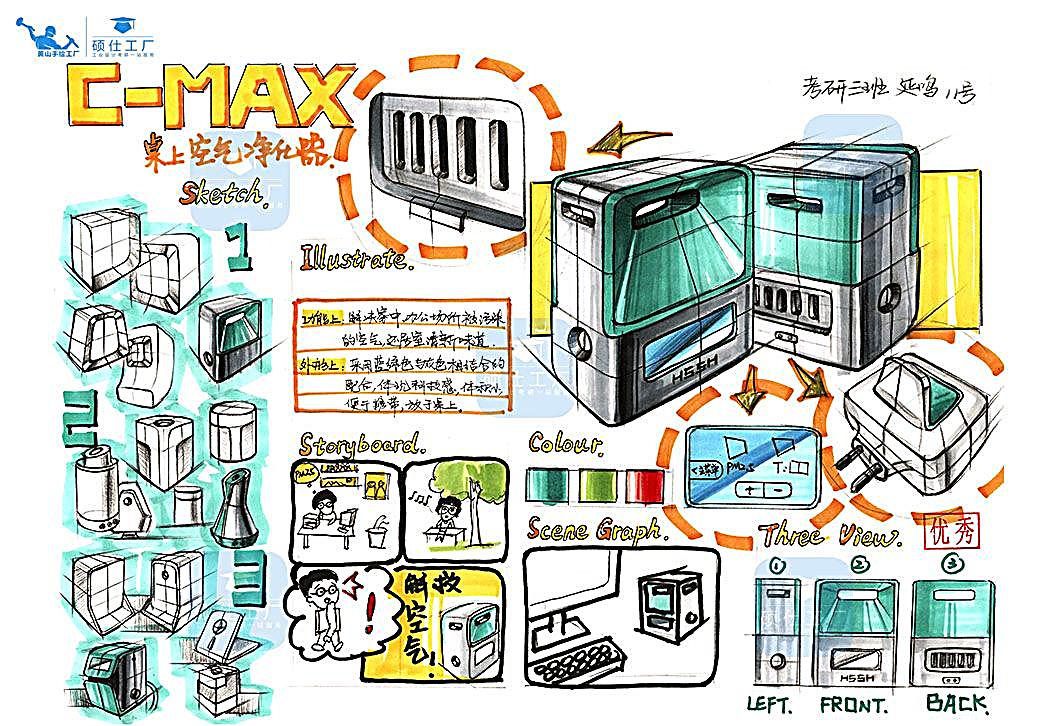 黄山手绘工厂
硕仕工厂
工业设计考研一站服务
C-MAX
桌上空气净化器.
考研三班 延鸣 11号
Sketch.
1
Illustrate.
功能上: 解决家中,办公场所被污染
的空气,还居室清新味道.
外形上: 采用蓝绿色与灰色相结合的
配合,体现科技感,体积小,
便于携带,放于桌上.
HSSH
PM2.5
T:
+ -
II
Storyboard.
PM2.5
Colour.
解救
空气!
Scene Graph.
Three View.
优秀
III
① ② ③
HSSH
LEFT. FRONT. BACK.